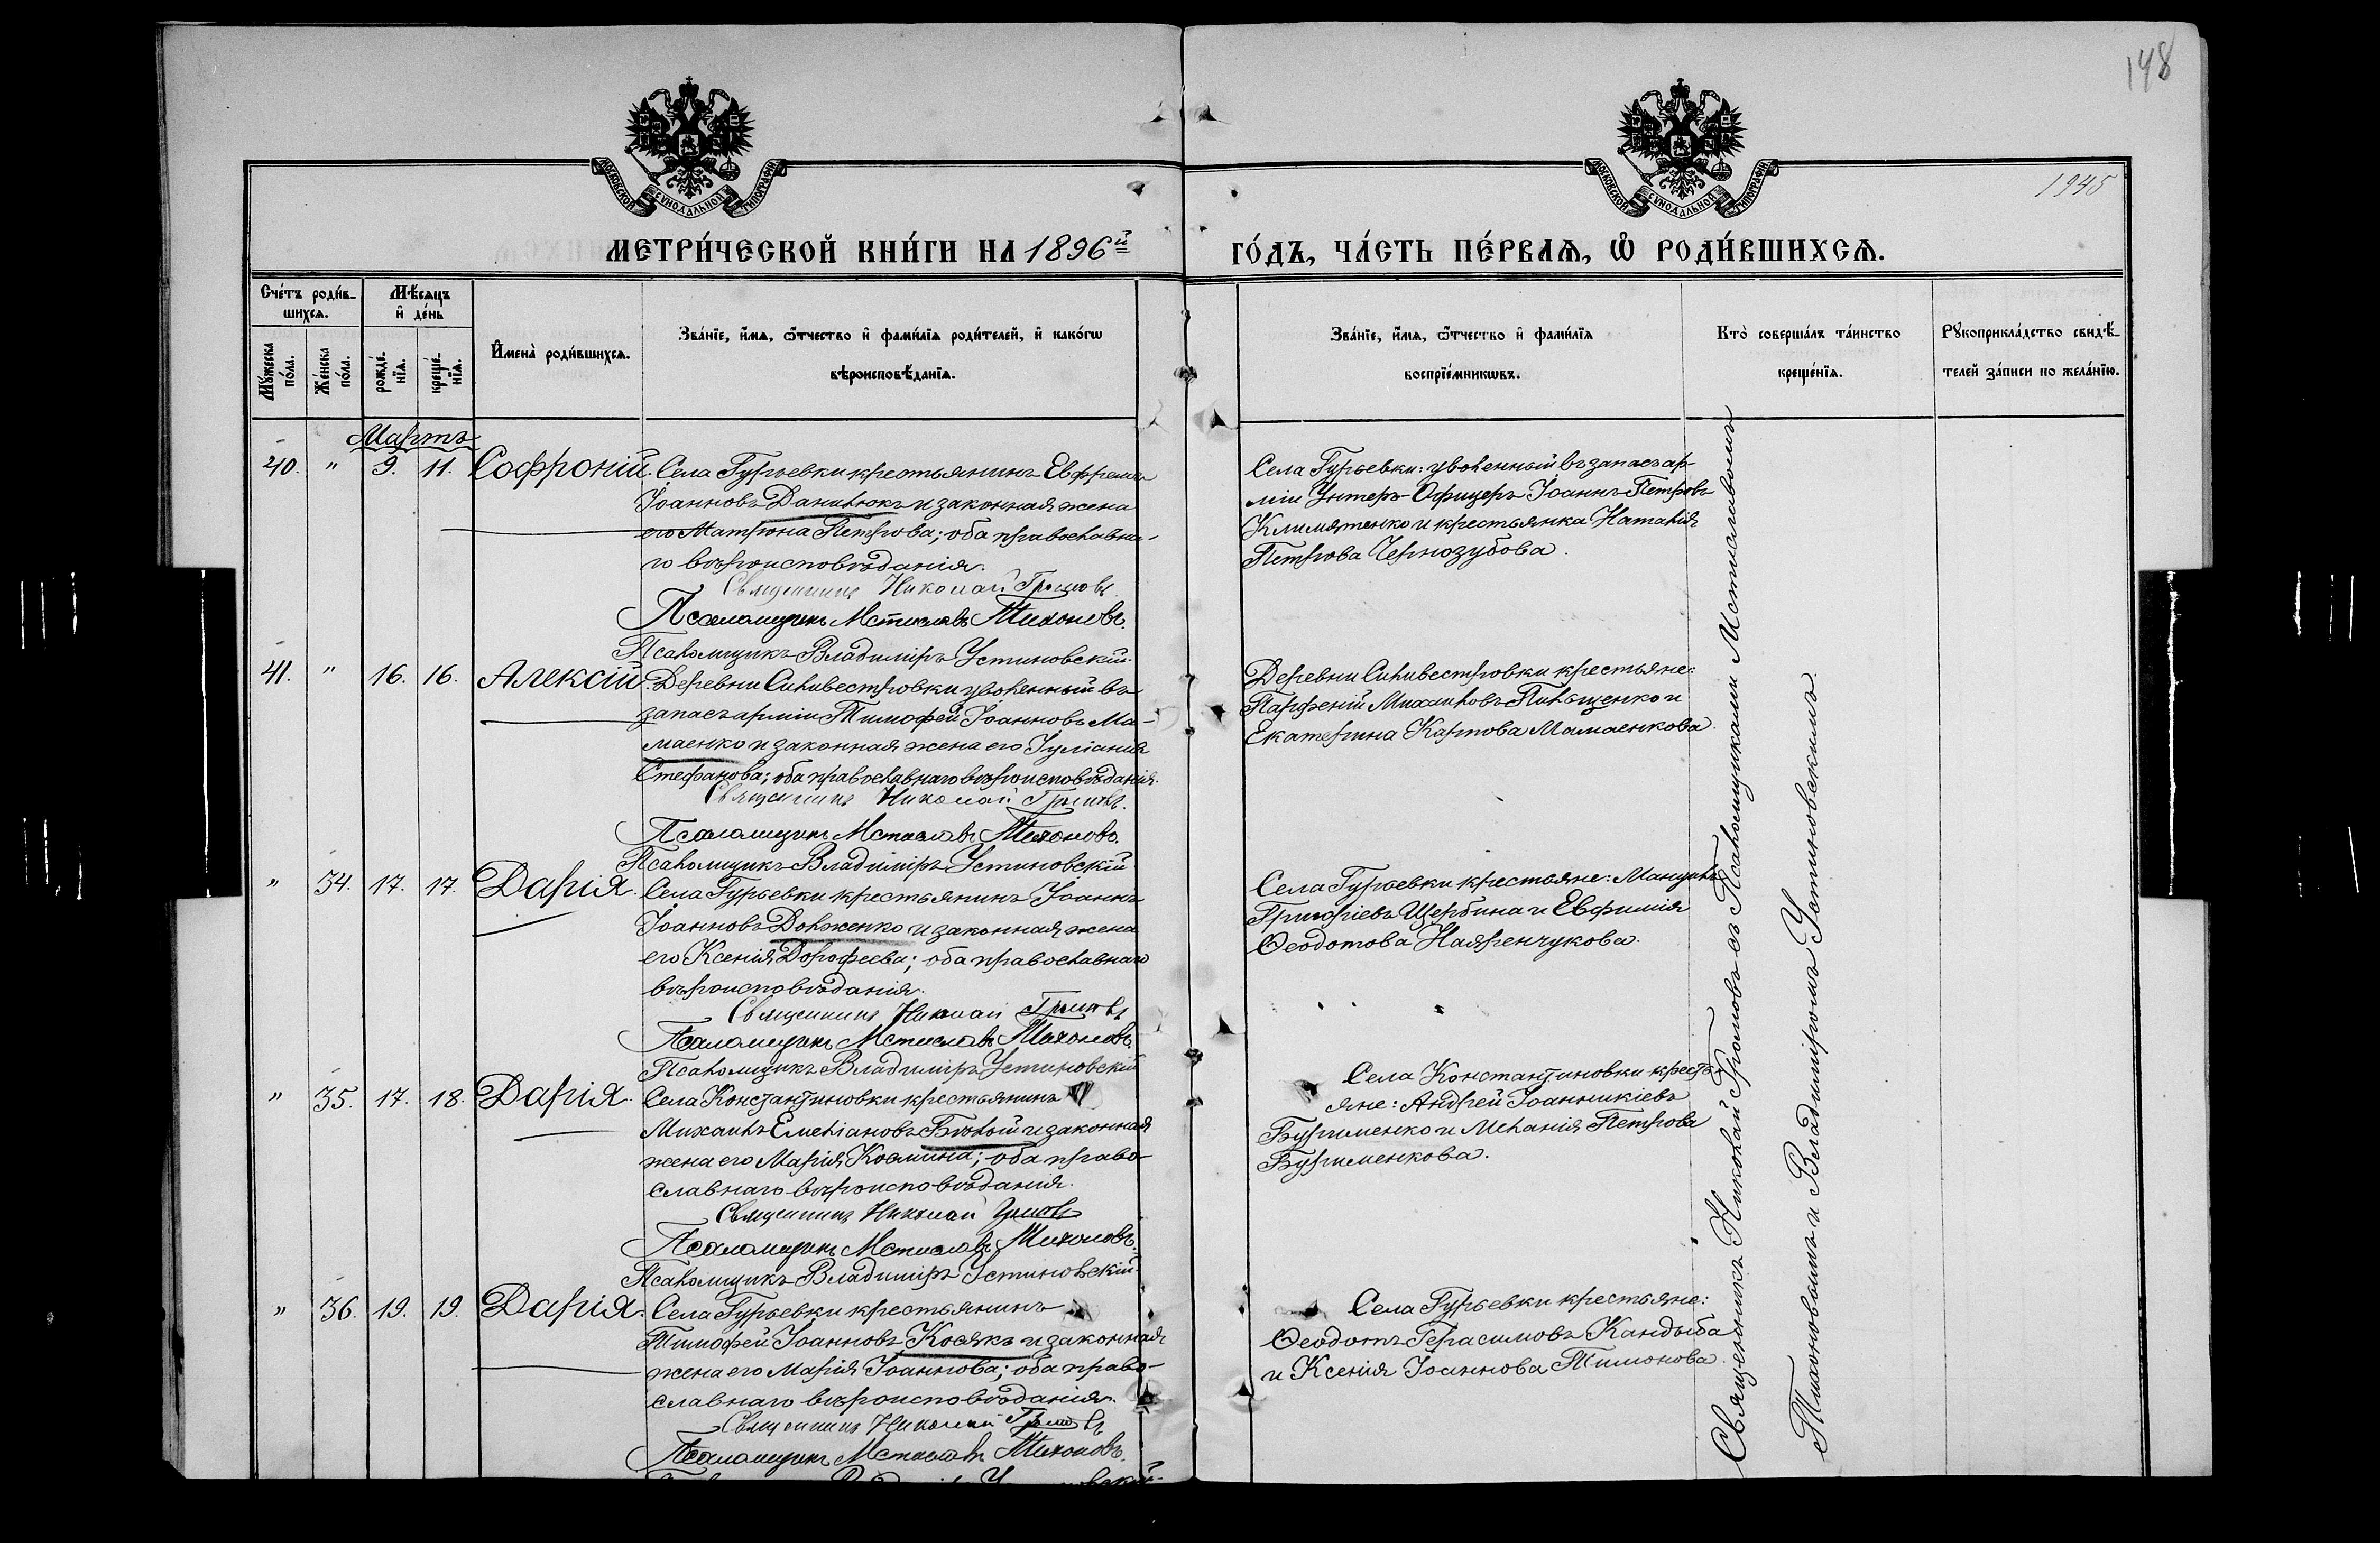 148
1945
МОСКОВСКОЙ СѴНОДАЛЬНОЙ ТИПОГРАФІИ
МОСКОВСКОЙ СѴНОДАЛЬНОЙ ТИПОГРАФІИ
МЕТРИ́ЧЕСКОЙ КНИ́ГИ НА 1896й
ГО́ДЪ, ЧА́СТЬ ПЕ́РВАѦ, Ѡ҆ РОДИ́ВШИХСѦ.
Сче́тъ роди́в-
шихсѧ.
Мꙋ́жеска по́ла.
Же́нска по́ла.
Мѣ́сѧцъ
и҆ де́нь
рожде́-
нїѧ.
креще́-
нїѧ.
И҆мена̀ роди́вшихсѧ.
Зва́нїе, и҆́мѧ, ѻ҆́тчество и҆ фами́лїѧ роди́телей, и҆ како́гѡ
вѣроисповѣ́данїѧ.
Зва́нїе, и҆́мѧ, ѻ҆́тчество и҆ фами́лїѧ
воспрїе́мникѡвъ.
Кто̀ соверша́лъ та́инство
креще́нїѧ.
Рꙋкоприкла́дство свидѣ́-
телей за́писи по жела́нїю.
Мартъ
40. " 9. 11. Софроній.
Села Гурьевки крестьянинъ Евфремъ
Іоанновъ Данилюкъ и законная жена
его Матрона Петрова; оба православна-
го вѣроисповѣданія.
Священникъ Николай Громовъ
Псаломщикъ Мстиславъ Тихоновъ.
Псаломщикъ Владиміръ Устиновскій.
Села Гурьевки: уволенный въ запасъ ар-
міи Унтеръ-Офицеръ Іоаннъ Петровъ
Климятенко и крестьянка Наталія
Петрова Чернозубова.
41. " 16. 16. Алексій
Деревни Сильвестровки уволенный въ
запасъ арміи Тимофей Іоанновъ Ма-
маенко и законная жена его Іуліанія
Стефанова; оба православнаго вѣроисповѣданія.
Священникъ Николай Громовъ.
Псаломщикъ Мстиславъ Тихоновъ.
Псаломщикъ Владиміръ Устиновскій
Деревни Сильвестровки крестьяне:
Парфеній Михаиловъ Пильщенко и
Екатерина Карпова Мамаенкова.
" 34. 17. 17. Дарія.
Села Гурьевки крестьянинъ Іоаннъ
Іоанновъ Долженко и законная жена
его Ксенія Дорофеева; оба православнаго
вѣроисповѣданія.
Священникъ Николай Громовъ
Псаломщикъ Мстиславъ Тихоновъ.
Псаломщикъ Владиміръ Устиновскій
Села Гурьевки крестьяне: Мануилъ
Григоріевъ Щербина и Евфимія
Ѳеодотова Наяренчукова.
" 35. 17. 18. Дарія.
Села Константиновки крестьянинъ
Михаилъ Емеліановъ Бѣлый и законная
жена его Марія Косьмина; оба право-
славнаго вѣроисповѣданія.
Священникъ Николай Громовъ
Псаломщикъ Мстиславъ Тихоновъ.
Псаломщикъ Владиміръ Устиновскій.
Села Константиновки кресть-
яне: Андрей Іоанникіевъ
Бурименко и Меланія Петрова
Бурименкова.
" 36. 19. 19. Дарія.
Села Гурьевки крестьянинъ
Тимофей Іоанновъ Косякъ и законная
жена его Марія Іоаннова; оба право-
славнаго вѣроисповѣданія.
Священникъ Николай Громовъ
Псаломщикъ Мстиславъ Тихоновъ.
Села Гурьевки крестьяне:
Ѳеодотъ Герасимовъ Кандыба
и Ксенія Іоаннова Тимонова.
Священникъ Николай Громовъ съ Псаломщиками Мстиславомъ
Тихоновымъ и Владиміромъ Устиновскимъ.